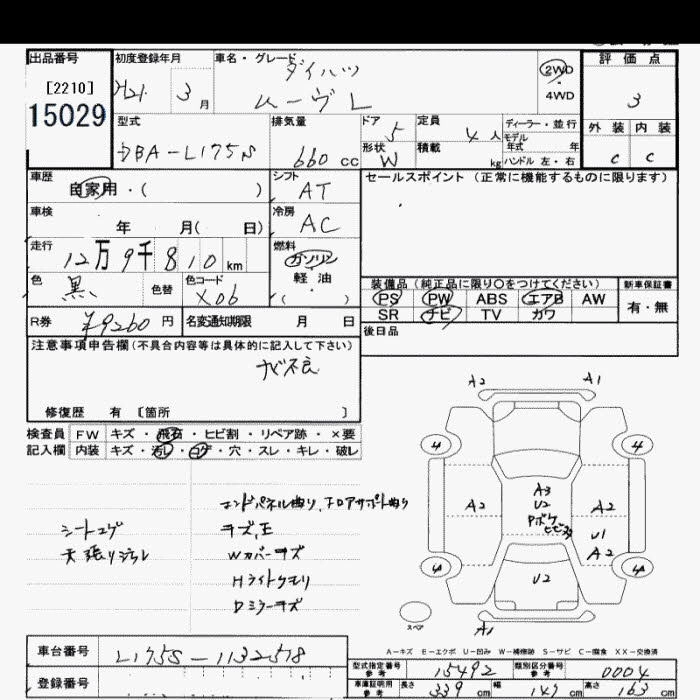 出品番号 初度登録年月 車名・グレード ダイハツ 2WD 評価点
[2210] H21. 3月 ムーヴ L ・ 4WD 3
15029 型式 排気量 ドア 5 定員 4人 ディーラー・並行 外装 内装
DBA-L175S 660cc 形状 W 積載 kg モデル年式 年 ハンドル 左・右 C C
車歴 自家用・( ) シフト AT セールスポイント (正常に機能するものに限ります)
車検 年 月( 日) 冷房 AC
走行 12万9千810km 燃料 ガソリン
色 黒 色替 色コード X06 軽油 ( )
装備品 (純正品に限り○をつけてください) 新車保証書
PS PW ABS エアB AW 有・無
SR ナビ TV カワ
R券 ¥9260円 名変通知期限 月 日 後日品
注意事項申告欄(不具合内容等は具体的に記入して下さい)
ナビ不良
修復歴 有 [箇所 ]
検査員 FW キズ・飛石・ヒビ割・リペア跡・×要
記入欄 内装 キズ・汚レ・コゲ・穴・スレ・キレ・破レ
エンドパネル曲り、フロアサポート曲り
シートコゲ キズ、凹
天張りジミレ Wカバーキズ
Hライトクモリ
Dミラーキズ
A2 A1
4 4
A2 A3 U2 Pボケ A2
U1
A2
4 4
U2
スペア A1
A-キズ E-エクボ U-凹み W-補修跡 S-サビ C-腐食 XX-交換済
車台番号 L175S-1132518
型式指定番号 参考 15492 類別区分番号 参考 0004
登録番号 車庫証明用 参考 長さ 339cm 幅 147cm 高さ 163cm